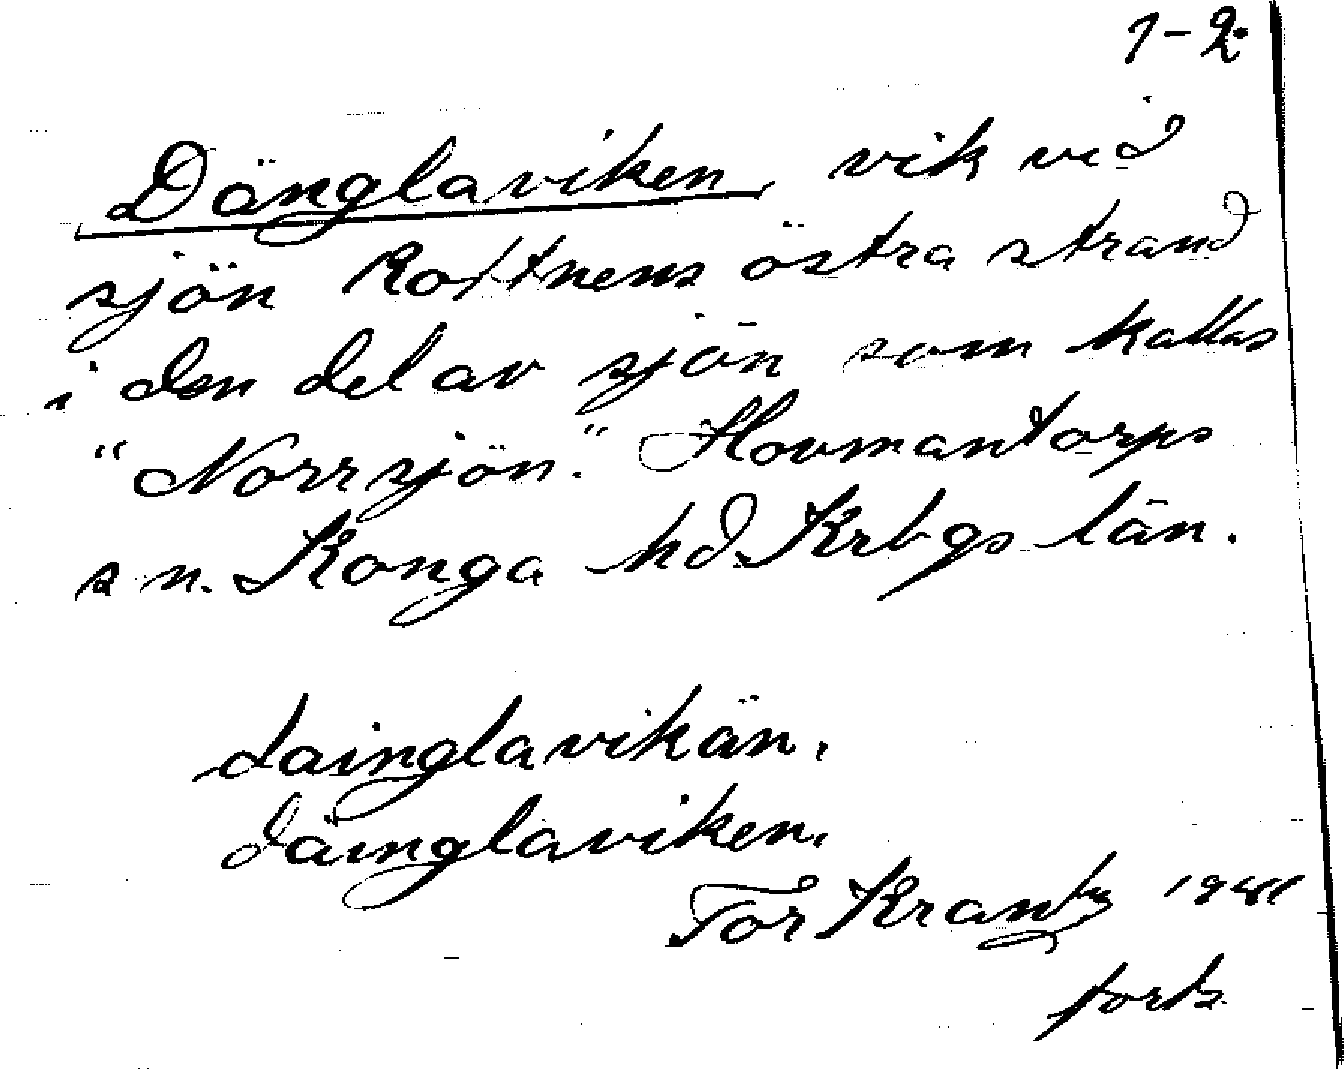 1-2.
Dänglaviken, vik vid
sjön Rottnens östra strand
i den del av sjön som kallas
"Norrsjön." Hovmantorps
sn. Konga hd. Krbgs län.
dainglavikän.
däinglaviken.
Tor Krantz 1941
forts.